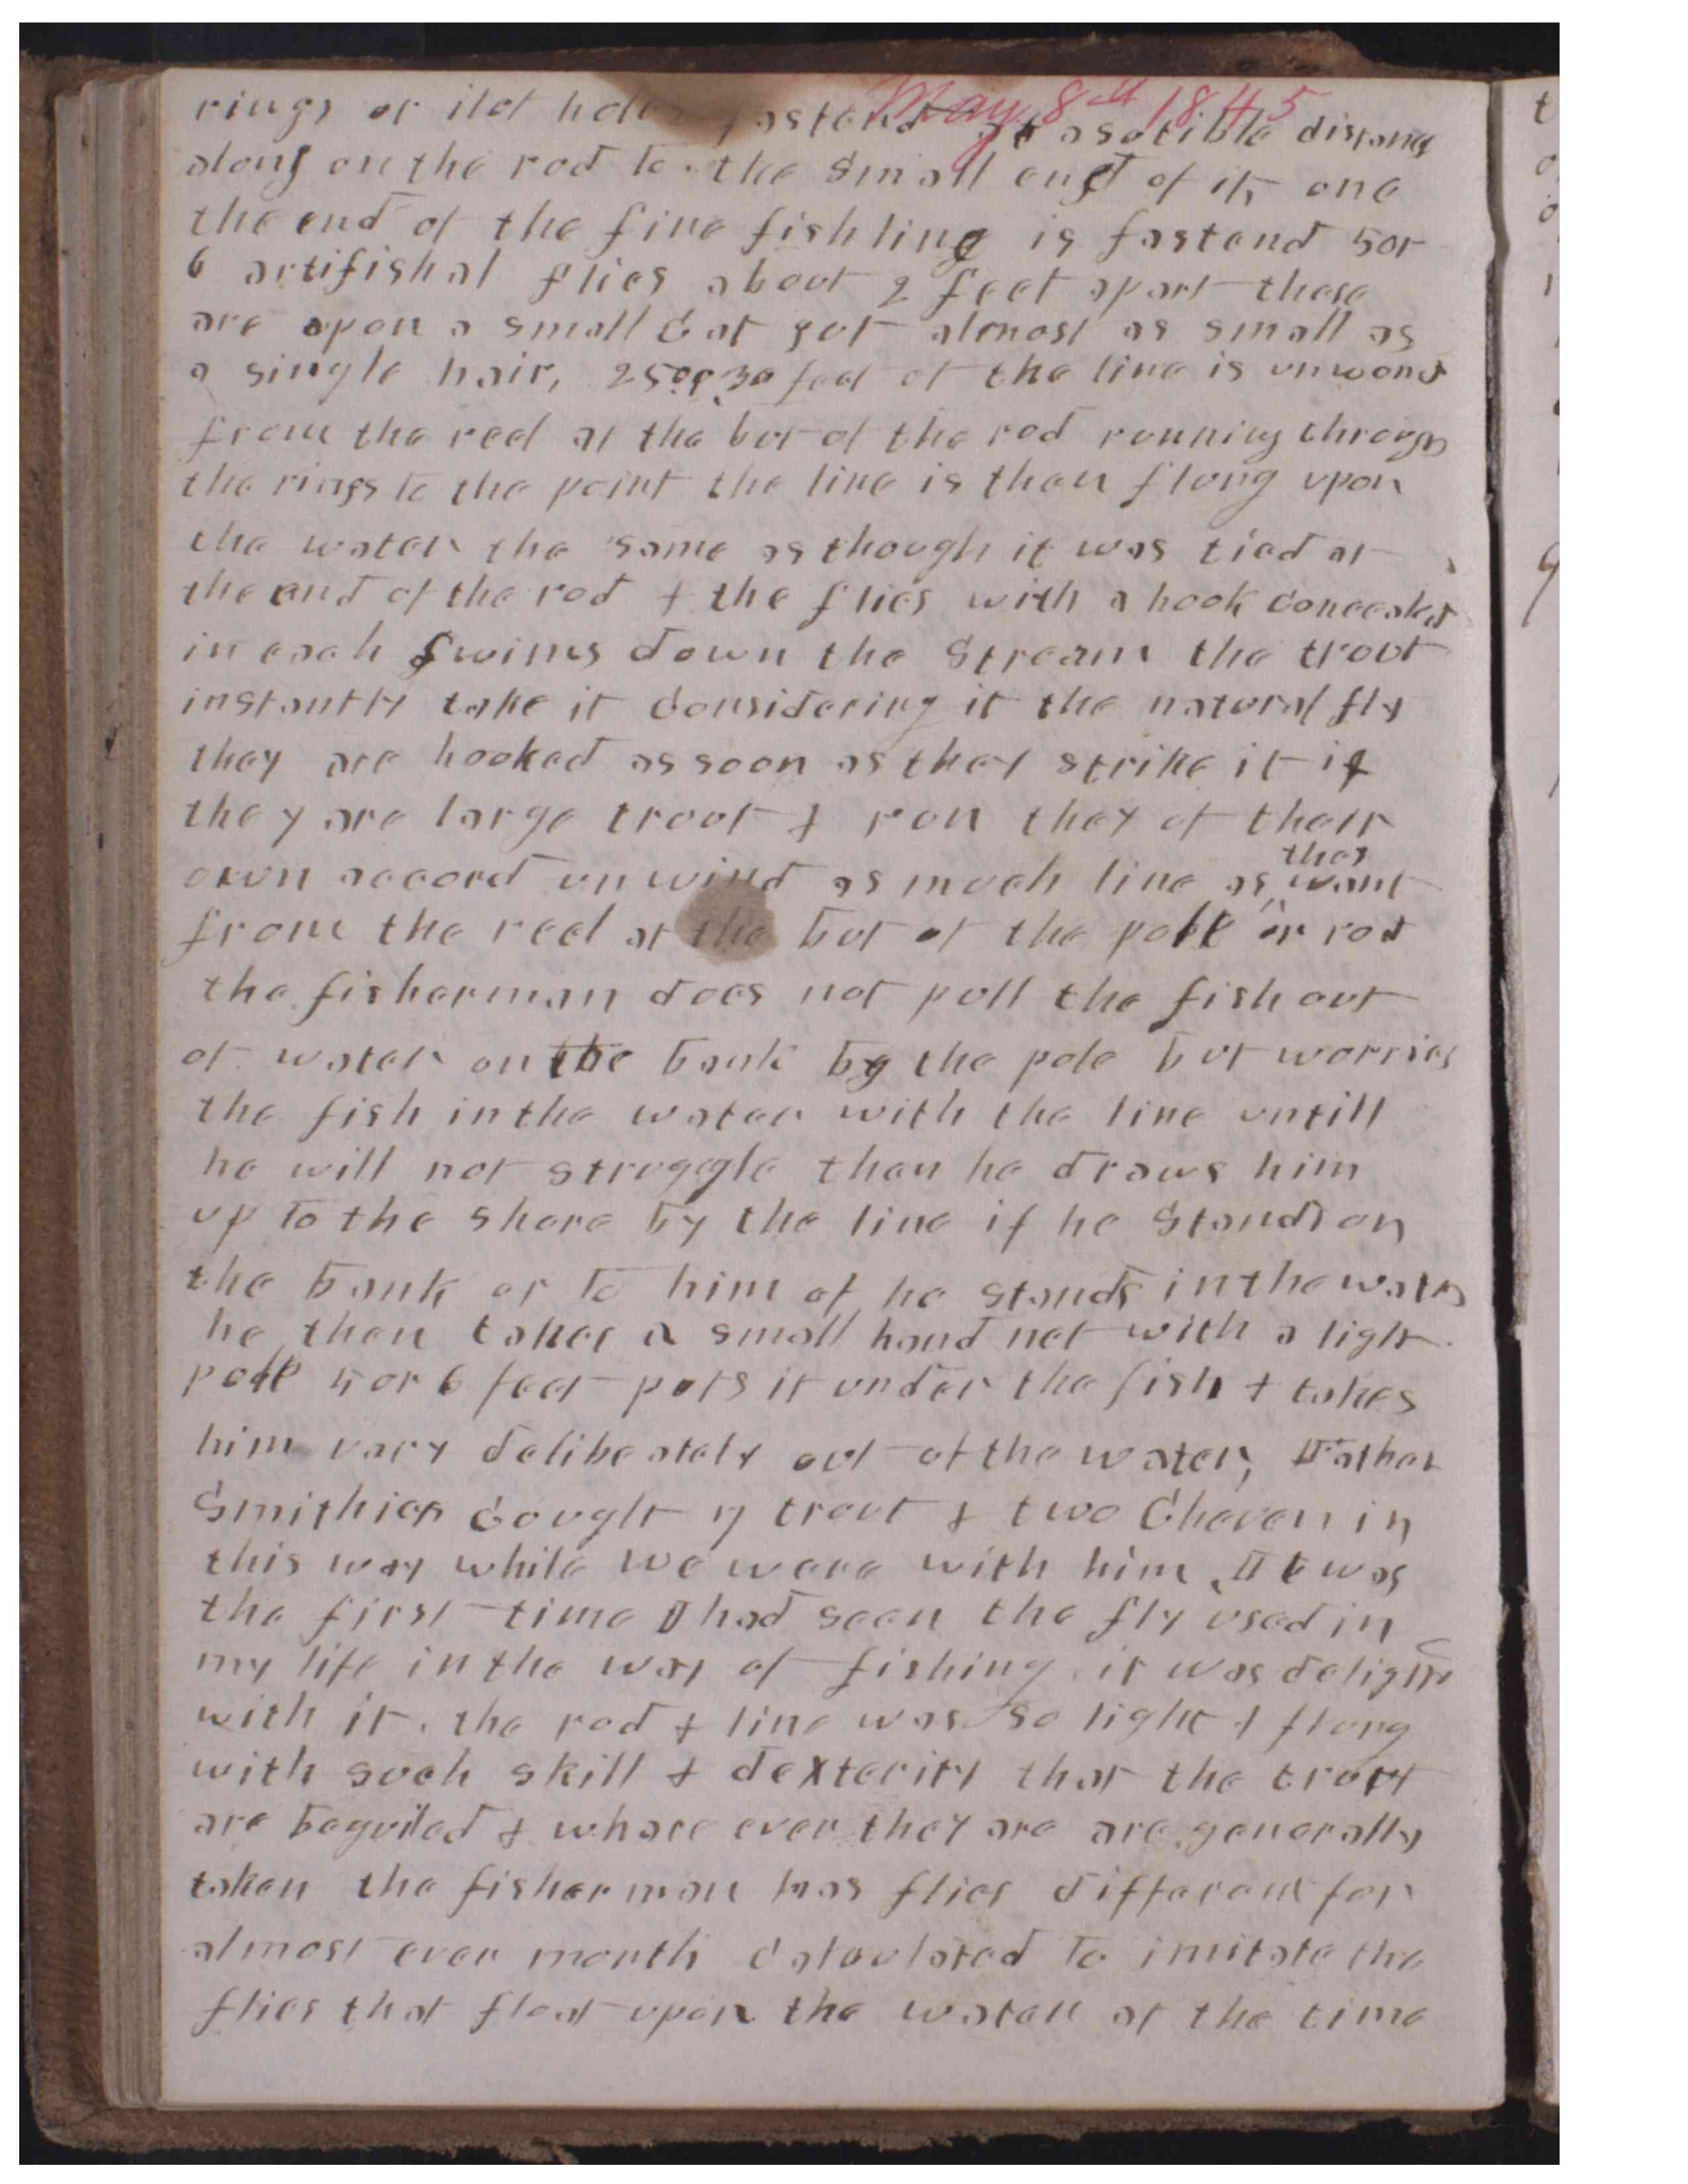 May 8th 1845
rings or ilet holes fastend at a sutible distance
along on the rod to the small end of it, one
the end of the fine fish line is fastend 5 or
6 artifishal flies about 2 feet apart these
are upon a small Cat gut almost as small as
a single hair, 25 or 30 feet of the line is unwond
from the reel at the but of the rod running through
the rings to the point the line is then flung upon
the water the same as though it was tied at
the end of the rod & the flies with a hook concealed
in each swims down the stream the trout
instantly take it considering it the natural fly
they are hooked as soon as they strike it if
they are large trout & run they of their
own accord unwind as much line as they want
from the reel at the but of the pole or rod
the fisherman does not pull the fish out
of water on the bank by the pole but worries
the fish in the water with the line untill
he will not struggle then he draws him
up to the shore by the line if he stands on
the bank or to him if he stands in the water
he then takes a small hand net with a light
pole 5 or 6 feet puts it under the fish & takes
him vary delibeately out of the water, Father
Smithies Caught trout & two Cheven in
this way while we were with him, It was
the first time I had seen the fly used in
my life in the way of fishing. it was delight
with it. the rod & line was so light & flung
with such skill & dexterity that the trout
are beguiled & whare ever they are are generally
taken the fisherman has flies different for
almost ever month calculated to imitate the
flies that float upon the water at the time